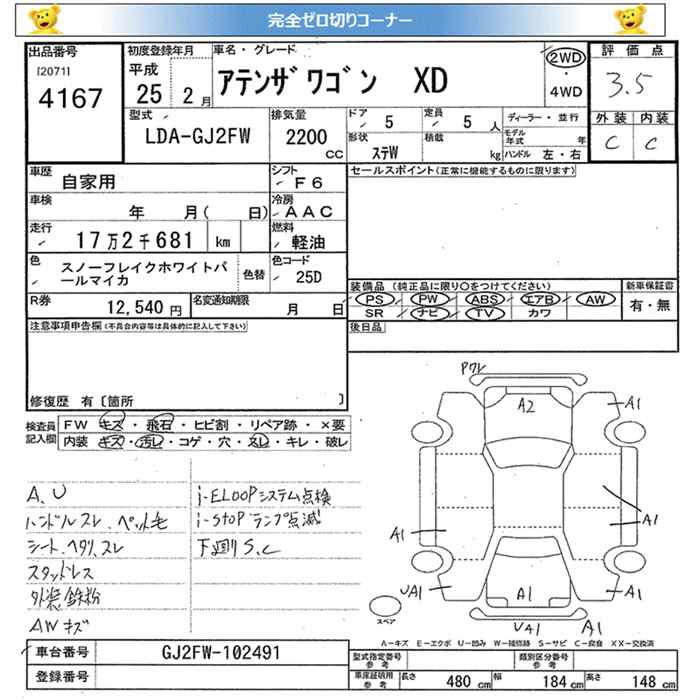 完全ゼロ切りコーナー
出品番号
[2071]
4167
初度登録年月
平成
25 2 月
車名・グレード
アテンザワゴン XD
2WD
・
4WD
評価点
3.5
外装 内装
C C
型式
LDA-GJ2FW
排気量
2200
CC
ドア
5
定員
5 人
形状
ステW
積載
kg
ディーラー・並行
モデル年式
年
ハンドル 左・右
車歴
自家用
シフト
F6
セールスポイント(正常に機能するものに限ります)
車検
年 月( 日)
冷房
AAC
走行
17万2千681 km
燃料
軽油
色
スノーフレイクホワイトパ
ールマイカ
色替
色コード
25D
装備品 (純正品に限り○をつけてください)
PS PW ABS エアB AW
SR ナビ TV カワ
新車保証書
有・無
R券
12,540 円
名変通知期限
月 日
後日品
注意事項申告欄(不具合内容等は具体的に記入して下さい)
修復歴 有〔箇所 〕
検査員
記入欄
FW キズ・飛石・ヒビ割・リペア跡・×要
内装・キズ・汚レ・コゲ・穴・スレ・キレ・破レ
A.U
ハンドルスレ、ペット毛
シート、ヘタリ、スレ
スタッドレス
外装鉄粉
AWキズ
i-ELOOPシステム点検
i-STOPランプ点滅
下廻りS.C
Pワレ
A2
A1
A1
A1
A1
UA1
A1
UA1
A1
スペア
A-キズ E-エクボ U-凹み W-補修跡 S-サビ C-腐食 XX-交換済
車台番号
GJ2FW-102491
登録番号
型式指定番号
参考
類別区分番号
参考
車庫証明用
参考
長さ 480 cm
幅 184 cm
高さ 148 cm